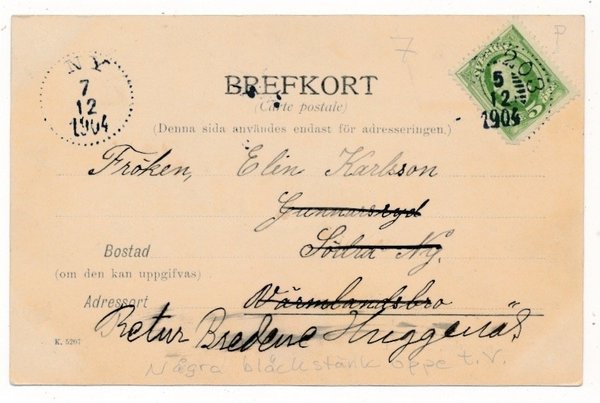 NY
7
12
1904
7
P
203
5
12
1904
BREFKORT
(Carte postale)
(Denna sida användes endast för adresseringen.)
Fröken, Elin Karlsson
Gunnarsryd
Södra Ny.
Bostad
(om den kan uppgifvas)
Adressort Värmlandsbro
Retur Bredene Huggenäs
K. 5297
Några bläckstänk uppe t.v.